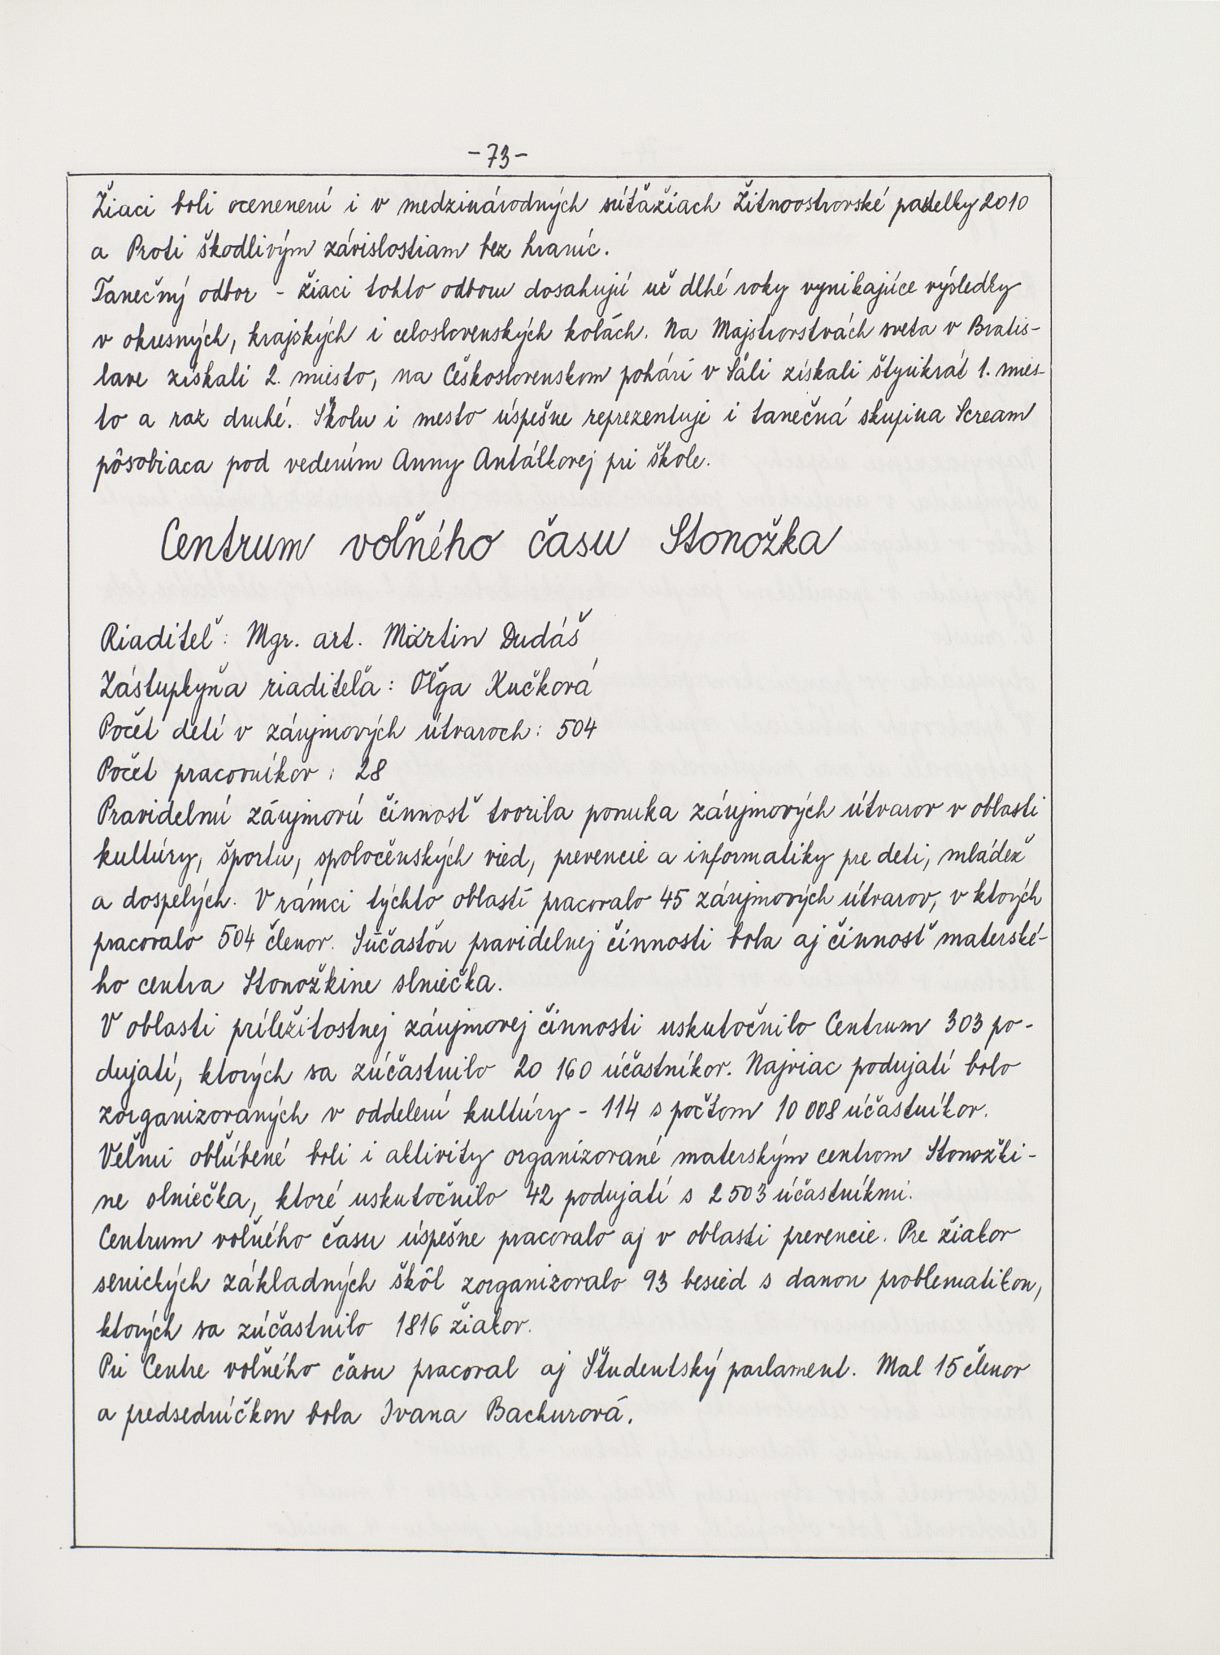 -73-
Žiaci boli ocenenení i v medzinárodných súťažiach Žitnoostrovské pastelky 2010
a Proti škodlivým závislostiam bez hraníc.
Tanečný odbor - žiaci tohto odboru dosahujú už dlhé roky vynikajúce výsledky
v okresných, krajských i celoslovenských kolách. Na Majstrovstvách sveta v Bratis-
lave získali 2. miesto, na Československom pohári v Šali získali štyrikrát 1. mies-
to a raz druhé. Školu i mesto úspešne reprezentuje i tanečná skupina Scream
pôsobiaca pod vedením Anny Antálkovej pri škole.
Centrum voľného času Stonožka
Riaditeľ: Mgr. art. Martin Dudáš
Zástupkyňa riaditeľa: Oľga Kučková
Počet detí v záujmových útvaroch: 504
Počet pracovníkov: 28
Pravidelnú záujmovú činnosť tvorila ponuka záujmových útvarov v oblasti
kultúry, športu, spoločenských vied, prevencie a informatiky pre deti, mládež
a dospelých. V rámci týchto oblastí pracovalo 45 záujmových útvarov, v ktorých
pracovalo 504 členov. Súčasťou pravidelnej činnosti bola aj činnosť materské-
ho centra Stonožkine slniečka.
V oblasti príležitostnej záujmovej činnosti uskutočnilo Centrum 303 po-
dujatí, ktorých sa zúčastnilo 20 160 účastníkov. Najviac podujatí bolo
zorganizovaných v oddelení kultúry - 114 s počtom 10 008 účastníkov.
Veľmi obľúbené boli i aktivity organizované materským centrom Stonožki-
ne slniečka, ktoré uskutočnilo 42 podujatí s 2 503 účastníkmi.
Centrum voľného času úspešne pracovalo aj v oblasti prevencie. Pre žiakov
senických základných škôl zorganizovalo 93 besied s danou problematikou,
ktorých sa zúčastnilo 1816 žiakov.
Pri Centre voľného času pracoval aj Študentský parlament. Mal 15 členov
a predsedníčkou bola Ivana Bachurová.